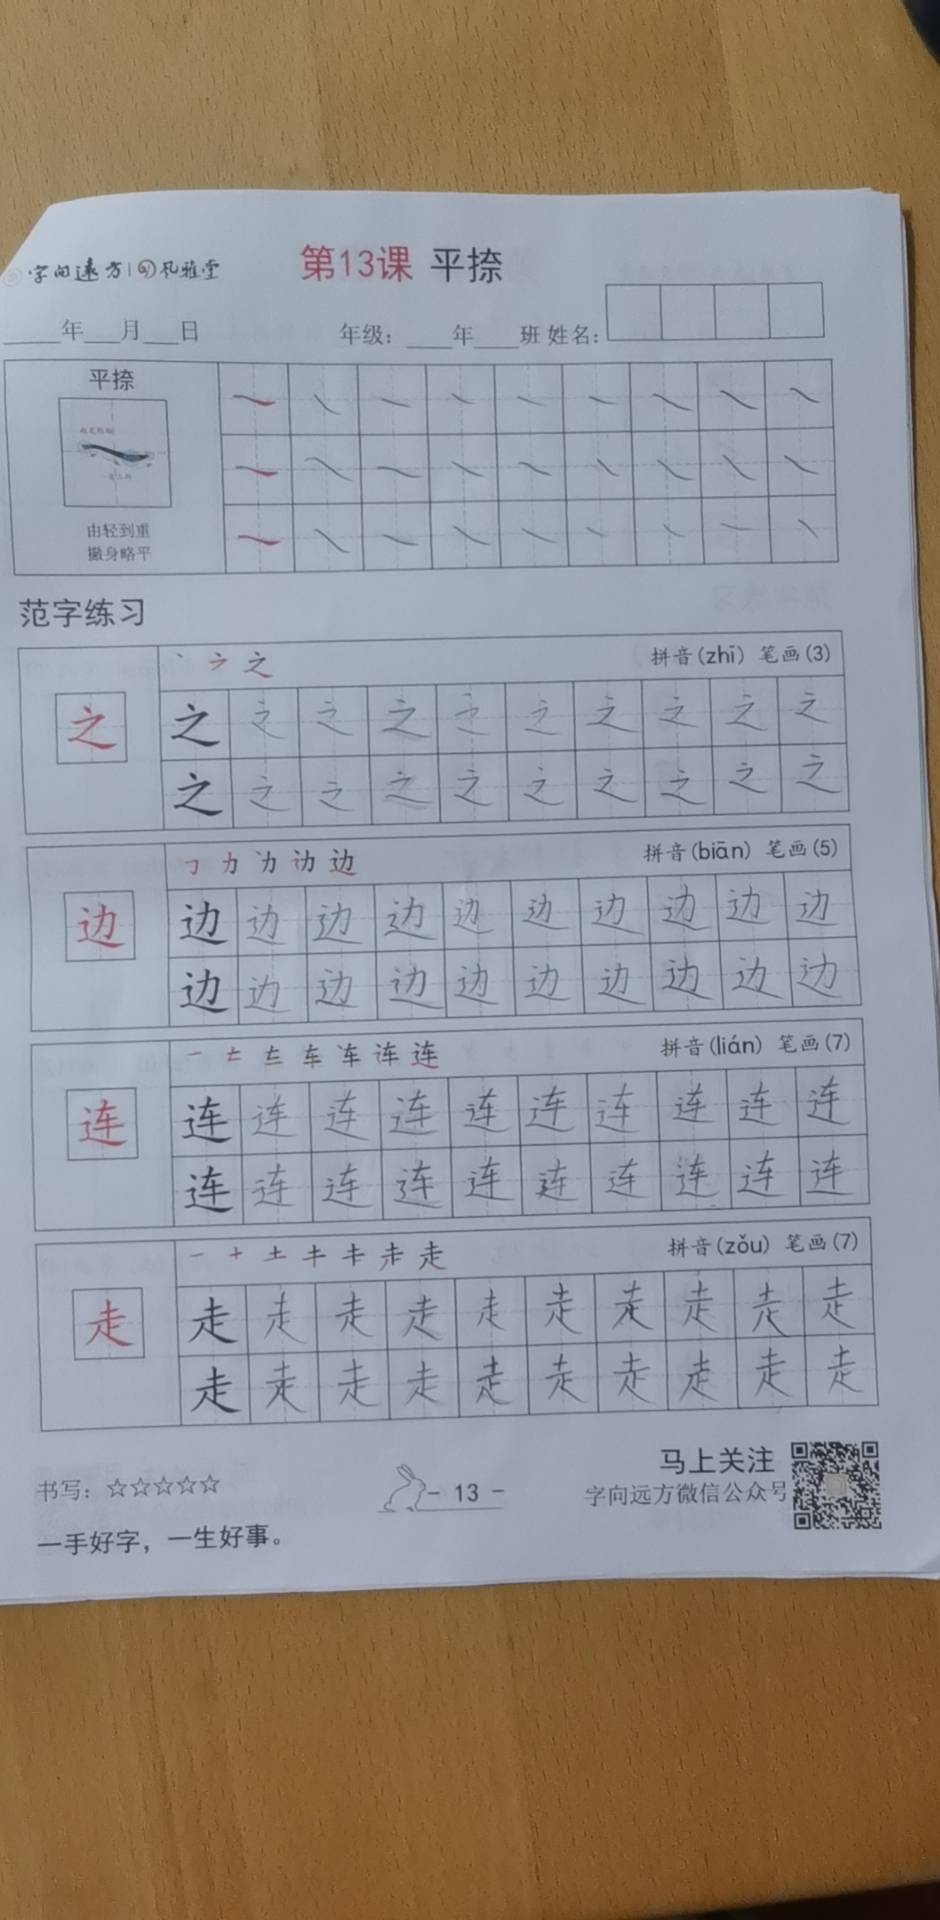 字向远方 风雅堂
第13课 平捺
年 月 日 年级： 年 班 姓名：
平捺
由轻到重
撇身略平
范字练习
丶 之 拼音(zhī) 笔画(3)
之 之 之 之 之 之 之 之 之 之 之
之 之 之 之 之 之 之 之 之 之
力 边 拼音(biān) 笔画(5)
边 边 边 边 边 边 边 边 边 边 边
边 边 边 边 边 边 边 边 边 边
一 车 连 拼音(lián) 笔画(7)
连 连 连 连 连 连 连 连 连 连 连
连 连 连 连 连 连 连 连 连 连
一 十 土 走 拼音(zǒu) 笔画(7)
走 走 走 走 走 走 走 走 走 走 走
走 走 走 走 走 走 走 走 走 走
书写：☆☆☆☆☆
- 13 -
马上关注
字向远方微信公众号
一手好字，一生好事。